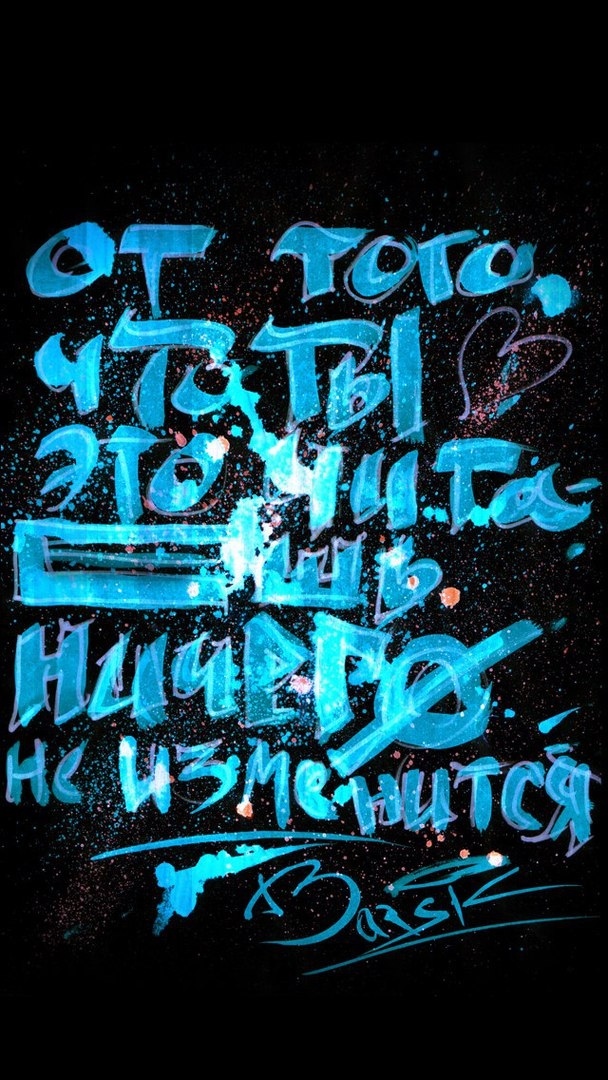 от того,
что ты
это чита-
ешь
ничего
не изменится
Barsik